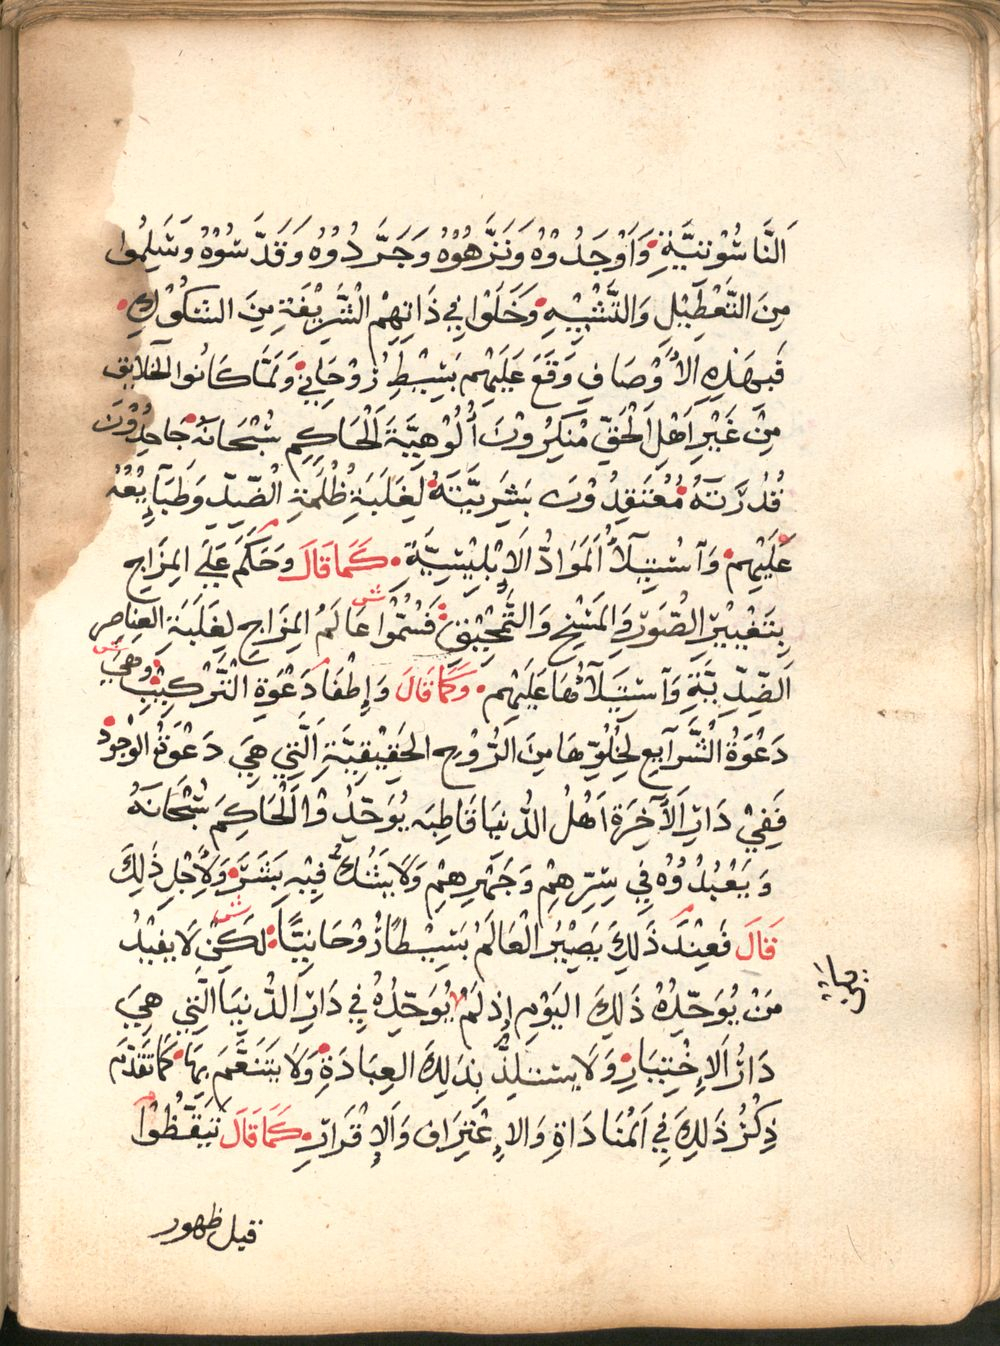 اَلنَّاسُوْتِيَّةِ وَاَوْجَدُوْهُ وَنَزَّهُوْهُ وَجَرَّدُوْهُ وَقَدَّسُوْهُ وَسَلِمُوا
مِنَ التَّعْطِيْلِ وَالتَّشْبِيْهِ وَخَلَوْا فِي ذَاتِهِمْ الْشَّرِيْفَةِ مِنَ الشُكُوْكِ
فَبِهَذِهِ الأَوْصَافِ وَقَعَ عَلَيْهِم بَسِيْطِ رُوْحَانِي وَلَمَّا كَانُوا الخَلايِق
مِنْ غَيْرِ اَهْلِ الْحَقِّ مُنْكِرُوْنَ أُلُوْهِيَّةَ الْحَاكِمِ سُبْحَانَهُ جَاحِدُوْنَ
قُدْرَتَهُ مُعْتَقِدُوْنَ بَشَرِيَّتَهُ لِغَلَبَةِ ظُلْمَةِ الْضِّدِّ وَطَبَآيِعُهُ
عَلَيْهِمْ وَآسْتِيْلَآ اَلْمَوَادِّ الإِبْلِيْسِيَّةِ كَمَا قَالَ وَحَكَمَ عَلَي المِزَاجِ
بِتَغْيِيْرِ الصُّوَرِ وَالمَسْخِ وَالتَّمْحِيْقِ ش فَسُمُّوْا عَالَمُ المِزَاجِ لِغَلَبَةِ العِنَاصِرِ
اَلضِّدِيَّةِ وَآسْتِيَلَآئُهَا عَلَيْهِم وَكَمَا قَالَ وَإِطْفَا دَعْوَةِ التَّرْكِيْبِ ش وَهِيَ
دَعْوَةُ الْشَّرَآيِعِ لِخُلُوِّهَا مِنَ الرُّوْحِ الحَقِيْقِيَّةِ اَلَّتِي هِيَ دَعْوَةُ الوُجُودِ
فَفِيْ دَارِ اَلآخِرَةِ اَهْلُ الدُّنْيَا قَاطِبَه يُوَحِّدُوْا الْحَاكِمَ سُبْحَانَهُ
وَيَعْبُدُوْهُ فِي سِرِّهِمْ وَجَهْرِهِمْ وَلَا يَشُكُّ فِيْهِ بَشَرٌ وَلِأَجْلِ ذَلِكَ
قَالَ فَعِنْدَ ذَلِكَ يَصِيْرُ الْعَالَمُ بَسِيْطًا رُوْحَانِيًّا ش لَكِنْ لَا يفِيْدُ
مَنْ يُوَحِّدُهُ ذَلِكَ اليَوْمِ إِذ لَمْ يُوَحِّدُهُ فِي دَارِ اَلْدُّنِيَا الَّتِي هِيَ
دَارُ اَلإِخْتِيَارِ وَلَا يَسْتَلِذُّ بِذَلِكَ العِبَادَةِ وَلَا يَتَنَعَّم بِهَا كَمَا تَقَدَّم
ذِكْرُ ذَلِكَ فِي اَلمُنَادَاةِ وَالاِعْتِرَاف وَاَلإِقْرَارِ كَمَا قَالَ تَيَقَّظُوْا
قبل ظهور